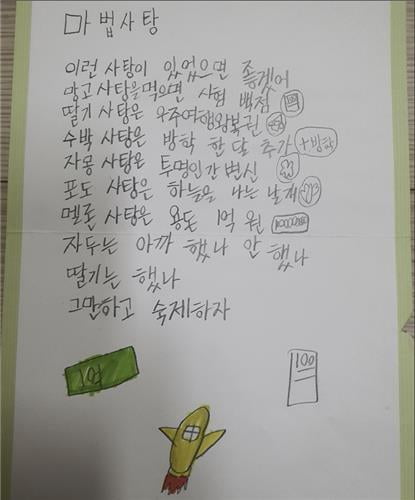 마법사탕
이런 사탕이 있었으면 좋겠어
망고 사탕을 먹으면 시험 백점
딸기 사탕은 우주여행왕복권
수박 사탕은 방학 한 달 추가 +방학
자몽 사탕은 투명인간 변신
포도 사탕은 하늘을 나는 날개
멜론 사탕은 용돈 1억 원
자두는 아까 했나 안 했나
딸기는 했나
그만하고 숙제하자
1억
100